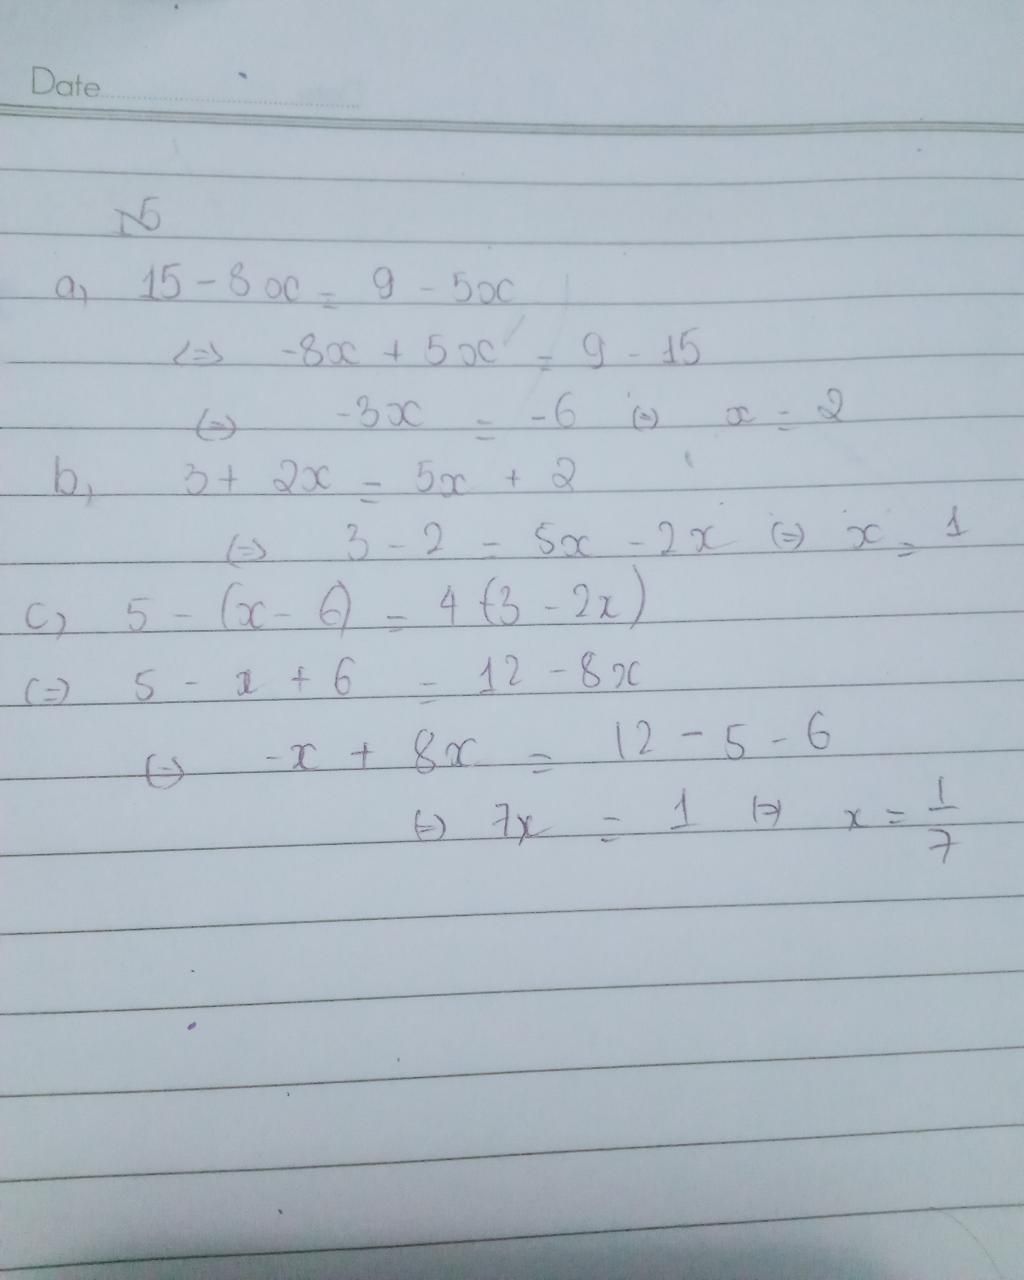 Date
N5
a, 15 - 8x = 9 - 5x
<=> -8x + 5x = 9 - 15
(=) -3x = -6 (=) x = 2
b, 3 + 2x = 5x + 2
(=) 3 - 2 = 5x - 2x (=) x = 1
c, 5 - (x - 6) = 4 (3 - 2x)
(=) 5 - x + 6 = 12 - 8x
(=) -x + 8x = 12 - 5 - 6
(=) 7x = 1 (=) x = 1/7